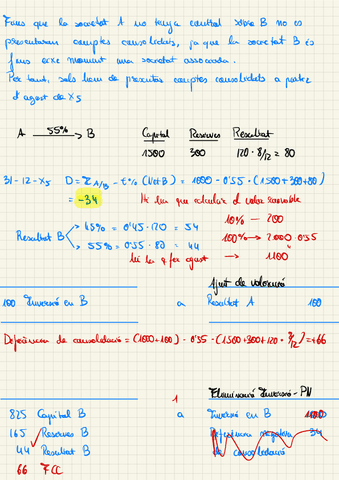 Fins que la societat A no tenga control sobre B no es
presentaran comptes consolidats, ja que la societat B és
fins eixe moment una societat associada.
Per tant, sols hem de presentar comptes consolidats a partir
d'agost de X5
A 55% B Capital Reserves Resultat
1500 300 120 · 8/12 = 80
31-12-X5 D = I A/B - t% (Net B) = 1000 - 0'55 · (1500+300+80)
= -34 Hi ha que calcular el valor raonable
10% — 200
Resultat B 45% = 0'45 · 120 = 54 100% → 2000 · 0'55
55% = 0'55 · 80 = 44
hi ha q fer ajust → 1100
Ajust de valoració
100 Inversió en B a Resultat A 100
Diferència de consolidació = (1000+100) - 0'55 · (1500+300+120 · 8/12) = +66
1 Eliminació Inversió - PN
825 Capital B a Inversió en B 1100
165 Reserves B Diferència negativa 34
44 Resultat B de consolidació
66 FCC